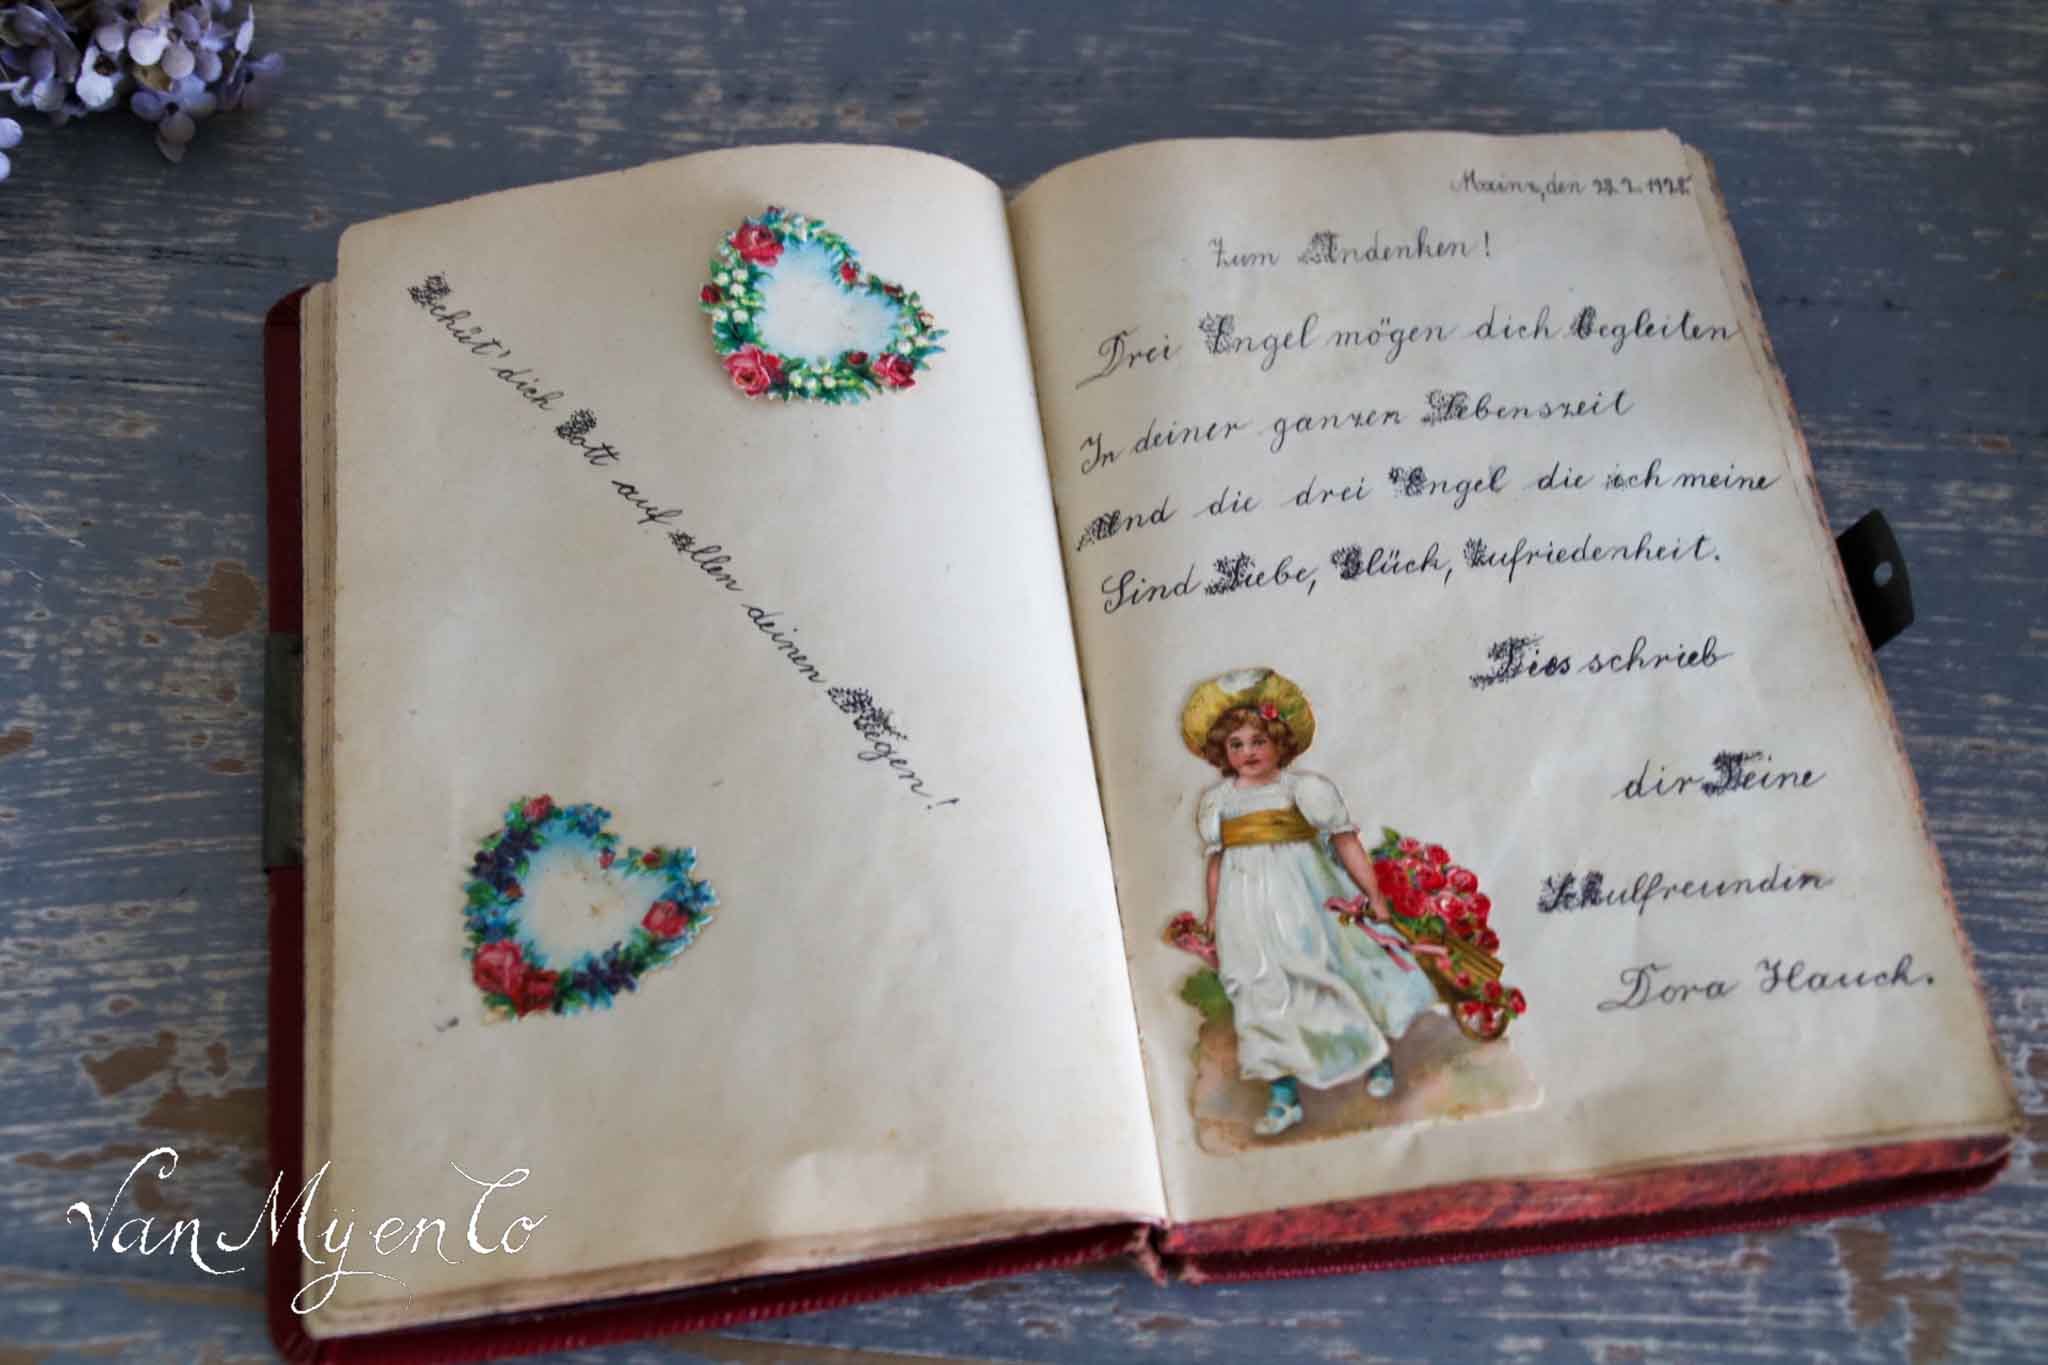 Schüt' dich Gott auf allen deinen Wegen!
Mainz, den 28. 2. 1928.
Zum Andenken!
Drei Engel mögen dich begleiten
In deiner ganzen Lebenszeit
Und die drei Engel die ich meine
Sind Liebe, Glück, Zufriedenheit.
Dies schrieb
dir Deine
Schulfreundin
Dora Hauck.
Van Mijen Co